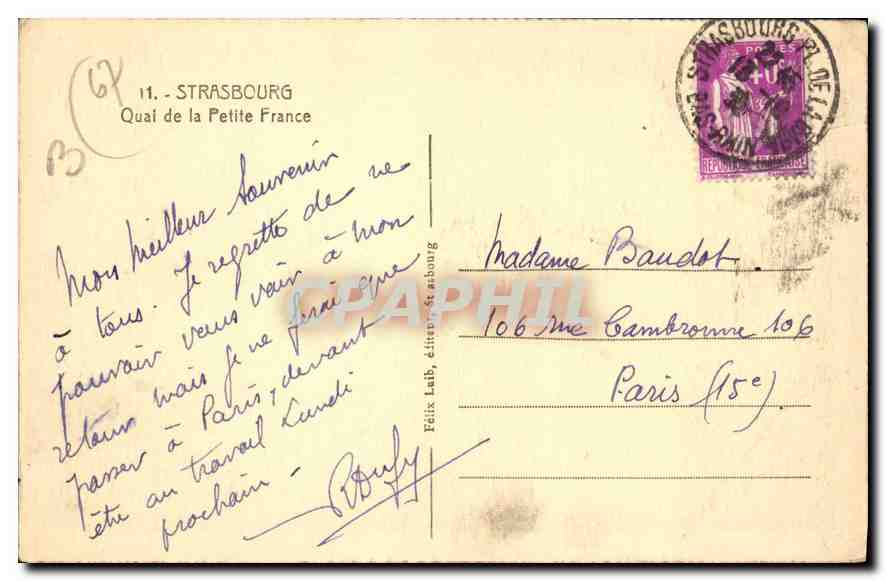 67
B
11. - STRASBOURG
Quai de la Petite France
Mon Meilleur Souvenir
à tous. Je regrette de ne
pouvoir vous voir à mon
retour mais je ne ferai que
passer à Paris, devant
être au travail Lundi
prochain -
RDufy
Félix Luib, éditeur, Strasbourg
STRASBOURG PL. DE LA
BAS-RHIN
POSTES
REPUBLIQUE FRANÇAISE
Madame Baudot.
106 rue Cambronne 106
Paris (15e)
CPAPHIL